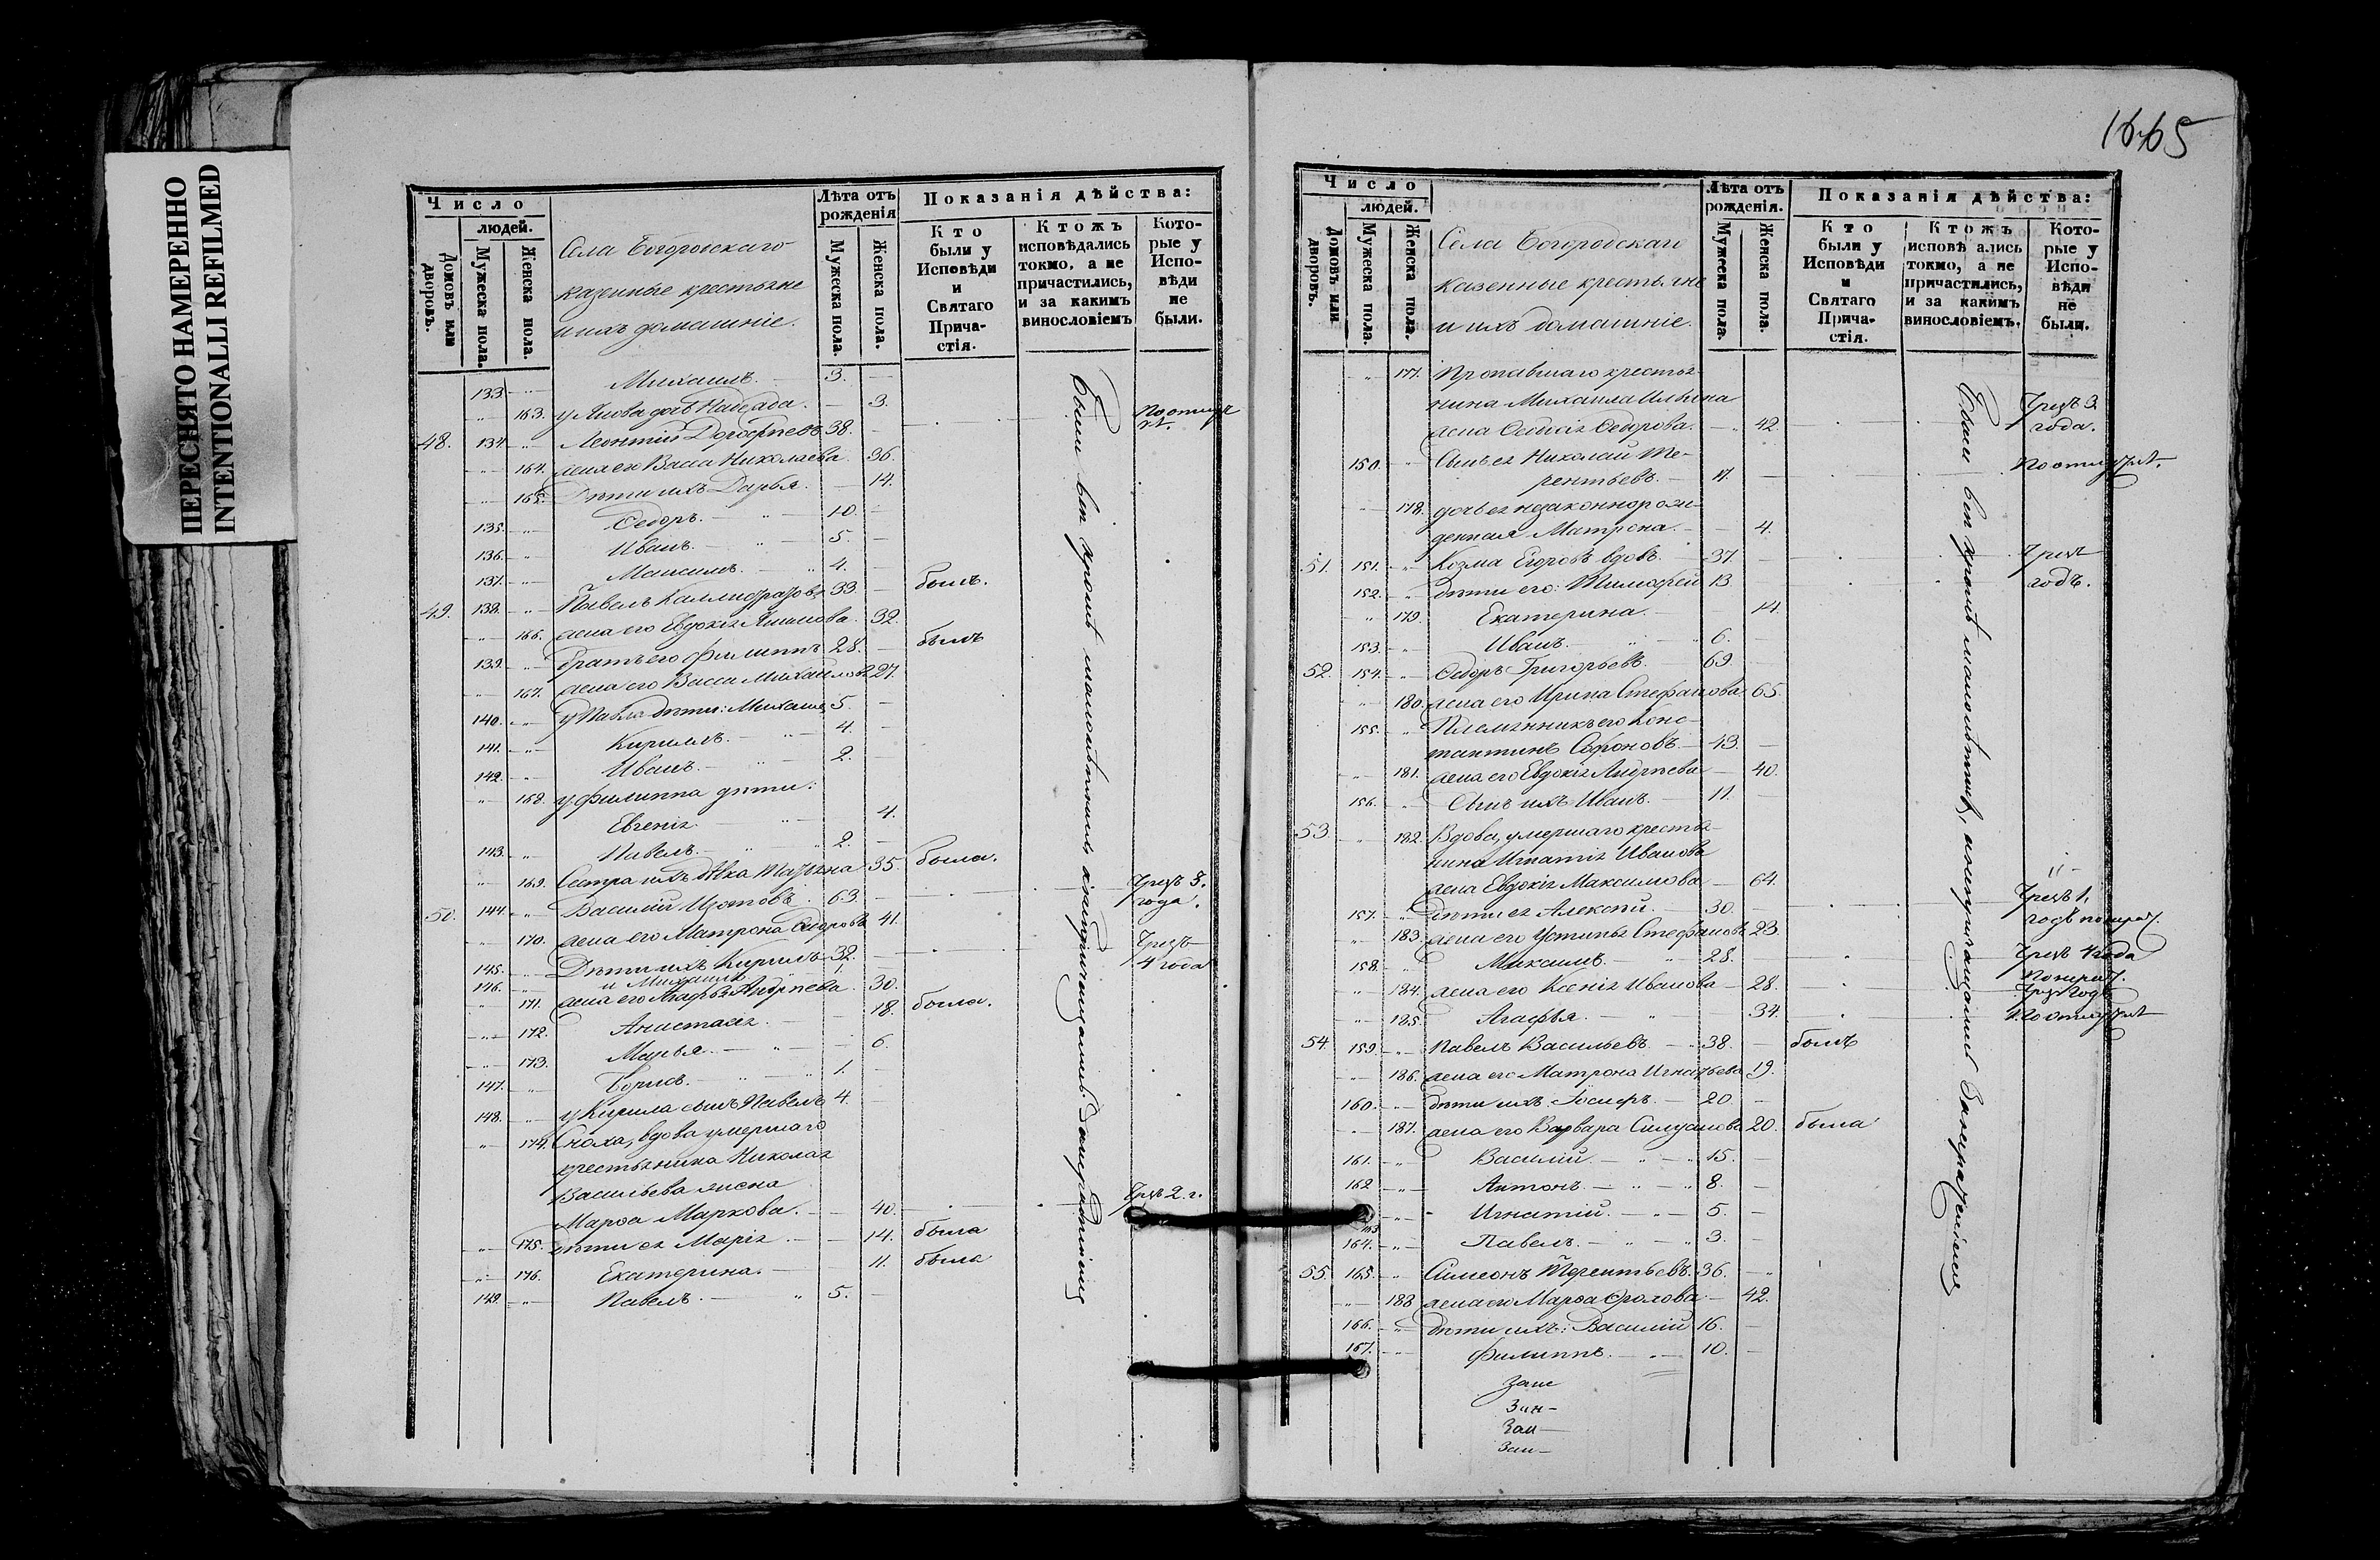 ПЕРЕСНЯТО НАМЕРЕННО
INTENTIONALLI REFILMED
Число
людей.
Домовъ или дворовъ.
Мужеска пола.
Женска пола.
Села Богородскаго
казенные крестьяне
и ихъ домашніе.
Лѣта отъ рожденія
Мужеска пола.
Женска пола.
Показанія дѣйства:
Кто были у Исповѣди и Святаго Причастія.
Ктожъ исповѣдались токмо, а не причастились, и за какимъ винословіемъ
Которые у Исповѣди не были.
133. Михаилъ. 3.
163. дочь Надежда. 3.
48. 134. Леонтій Дорофѣевъ 38.
164. жена его Васса Николаева 36.
165. Дѣти ихъ Дарья. 14.
135. Ѳедоръ. 10.
136. Иванъ. 5.
137. Максимъ. 4.
49. 138. Павелъ Каллистратовъ 33. былъ.
166. жена его Евдокія 32.
139. братъ его Филиппъ 28. былъ
167. жена его Васса Михайлова 27.
140. у Павла дѣти: Михаилъ 5.
141. Кириллъ. 4.
142. Иванъ. 2.
168. у Филиппа дѣти:
Евгенія. 4.
143. Павелъ. 2.
169. Сестра ихъ дѣвка Татьяна 35. была.
50. 144. Василій Изотовъ. 63. Чрезъ 3. года.
170. жена его Матрона Ѳедорова 41.
145. Дѣти ихъ Кирилъ 32. Чрезъ 4 года
146. и Михаилъ 1.
171. жена его Агафья Андреева 30.
172. Анастасія. 18. была.
173. Марья. 6.
147. Борисъ. 1.
148. у Кирила сынъ Павелъ 4.
174. Сноха, вдова умершаго
крестьянина Николая
Васильева жена
Марѳа Маркова. 40. Чрезъ 2. г.
175. дѣти ея Марія. 14. была
176. Екатерина. 11. была
149. Павелъ. 5.
1665
Число
людей.
Домовъ или дворовъ.
Мужеска пола.
Женска пола.
Села Богородскаго
казенные крестьяне
и ихъ домашніе.
Лѣта отъ рожденія.
Мужеска пола.
Женска пола.
Показанія дѣйства:
Кто были у Исповѣди и Святаго Причастія.
Ктожъ исповѣ ались токмо, а не причастились, и за какимъ винословіемъ.
Которые у Исповѣди не были.
177. Пропавшаго крестья-
нина Михаила Ильина
жена Ѳеодосія Ѳедорова. 42. Чрезъ 3 года.
150. Сынъ ея Николай Те-
рентьевъ.
178. дочь ея незаконнорож-
денная Матрона. 4.
51. 151. Козма Егоровъ вдовъ. 37. Чрезъ годъ.
152. дѣти его: Тимофей 13.
179. Екатерина. 14.
153. Иванъ. 6.
52. 154. Ѳедоръ Григорьевъ. 69.
180. жена его Ирина Стефанова 65.
155. Племянникъ его Конс-
тантинъ Сафоновъ. 43.
181. жена его Евдокія Андреева 40.
156. Сынъ ихъ Иванъ. 11.
53. 182. Вдова, умершаго крестья-
нина Игнатія Иванова
жена Евдокія Максимова 64.
157. дѣти ея Алексѣй. 30. Чрезъ 1, годъ
183. жена его Устинья Стефанова 23.
158. Максимъ. 28. Чрезъ 4 года
184. жена его Ксенія Иванова 28. Чрезъ годъ
185. Агафья. 34.
54. 159. Павелъ Васильевъ. 38. былъ
186. жена его Матрона Игнатьева 19.
160. дѣти ихъ: Іосифъ. 20.
187. жена его Варвара Силуанова 20. была
161. Василій. 15.
162. Антонъ. 8.
163. Игнатій. 5.
164. Павелъ. 3.
55. 165. Симеонъ Терентьевъ. 36.
188. жена его Марѳа Фролова 42.
166. дѣти ихъ: Василій 16.
167. Филиппъ. 10.